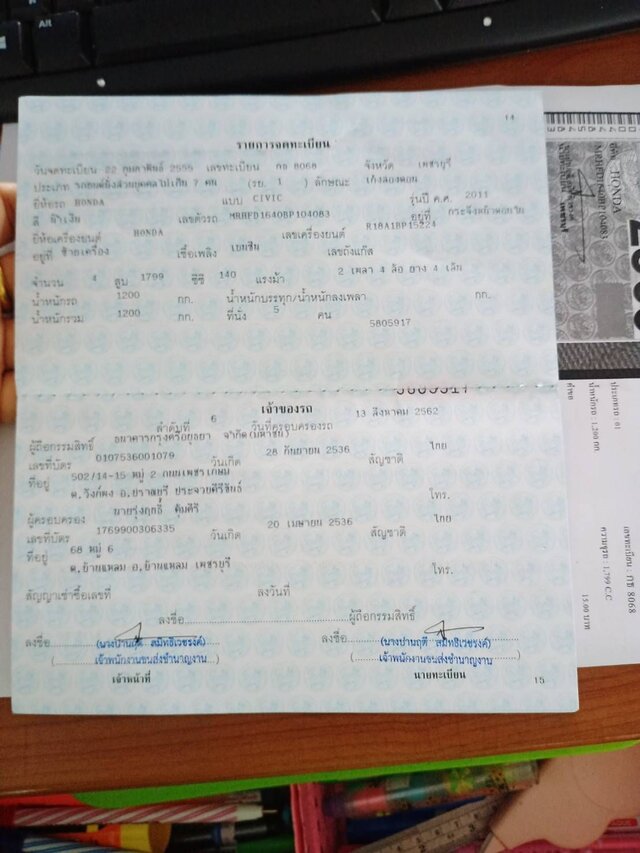 14
รายการจดทะเบียน
วันจดทะเบียน 22 กุมภาพันธ์ 2555 เลขทะเบียน กธ 8068 จังหวัด เพชรบุรี
ประเภท รถยนต์นั่งส่วนบุคคลไม่เกิน 7 คน (รย. 1 ) ลักษณะ เก๋งสองตอน
ยี่ห้อรถ HONDA แบบ CIVIC รุ่นปี ค.ศ. 2011
สี ฟ้าเงิน เลขตัวรถ MRHFD1640BP104083 อยู่ที่
ยี่ห้อเครื่องยนต์ HONDA เลขเครื่องยนต์ R18A1BP15224
อยู่ที่ ซ้ายเครื่อง เชื้อเพลิง เบนซิน เลขถังแก๊ส
จำนวน 4 สูบ 1799 ซีซี 140 แรงม้า 2 เพลา 4 ล้อ ยาง 4 เส้น
น้ำหนักรถ 1200 กก. น้ำหนักบรรทุก/น้ำหนักลงเพลา กก.
น้ำหนักรวม 1200 กก. ที่นั่ง 5 คน
5805917
เจ้าของรถ
ลำดับที่ 6 วันที่ครอบครองรถ 13 สิงหาคม 2562
ผู้ถือกรรมสิทธิ์ ธนาคารกรุงศรีอยุธยา จำกัด (มหาชน)
เลขที่บัตร 0107536001079 วันเกิด 28 กันยายน 2536 สัญชาติ ไทย
ที่อยู่ 502/14-15 หมู่ 2 ถนนเพชรเกษม
ต.วังก์พง อ.ปราณบุรี ประจวบคีรีขันธ์ โทร.
ผู้ครอบครอง นายรุ่งฤทธิ์ คุ้มศิริ
เลขที่บัตร 1769900306335 วันเกิด 20 เมษายน 2536 สัญชาติ ไทย
ที่อยู่ 68 หมู่ 6
ต.บ้านแหลม อ.บ้านแหลม เพชรบุรี โทร.
สัญญาเช่าซื้อเลขที่ ลงวันที่
ลงชื่อ ผู้ถือกรรมสิทธิ์
ลงชื่อ ลงชื่อ
(นางปานฤดี สมิทธิเวชรงค์) (นางปานฤดี สมิทธิเวชรงค์)
( เจ้าพนักงานขนส่งชำนาญงาน ) ( เจ้าพนักงานขนส่งชำนาญงาน )
เจ้าหน้าที่ นายทะเบียน
15
HONDA
น้ำหนักรถ : 1,200 กก.
เลขทะเบียน : กธ 8068
ความจุรถ : 1,799 C.C
15.00 บาท